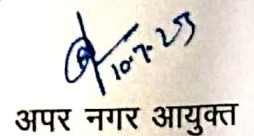 10.7.23
अपर नगर आयुक्त